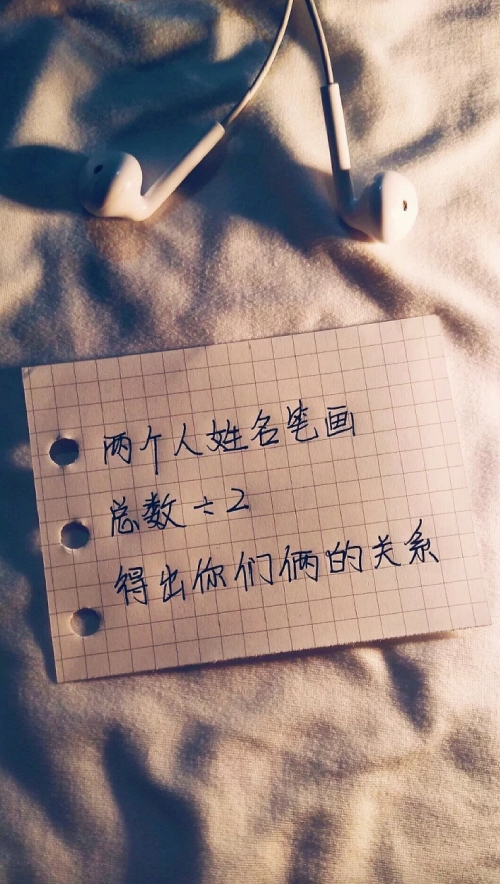 两个人姓名笔画
总数÷2
得出你们俩的关系